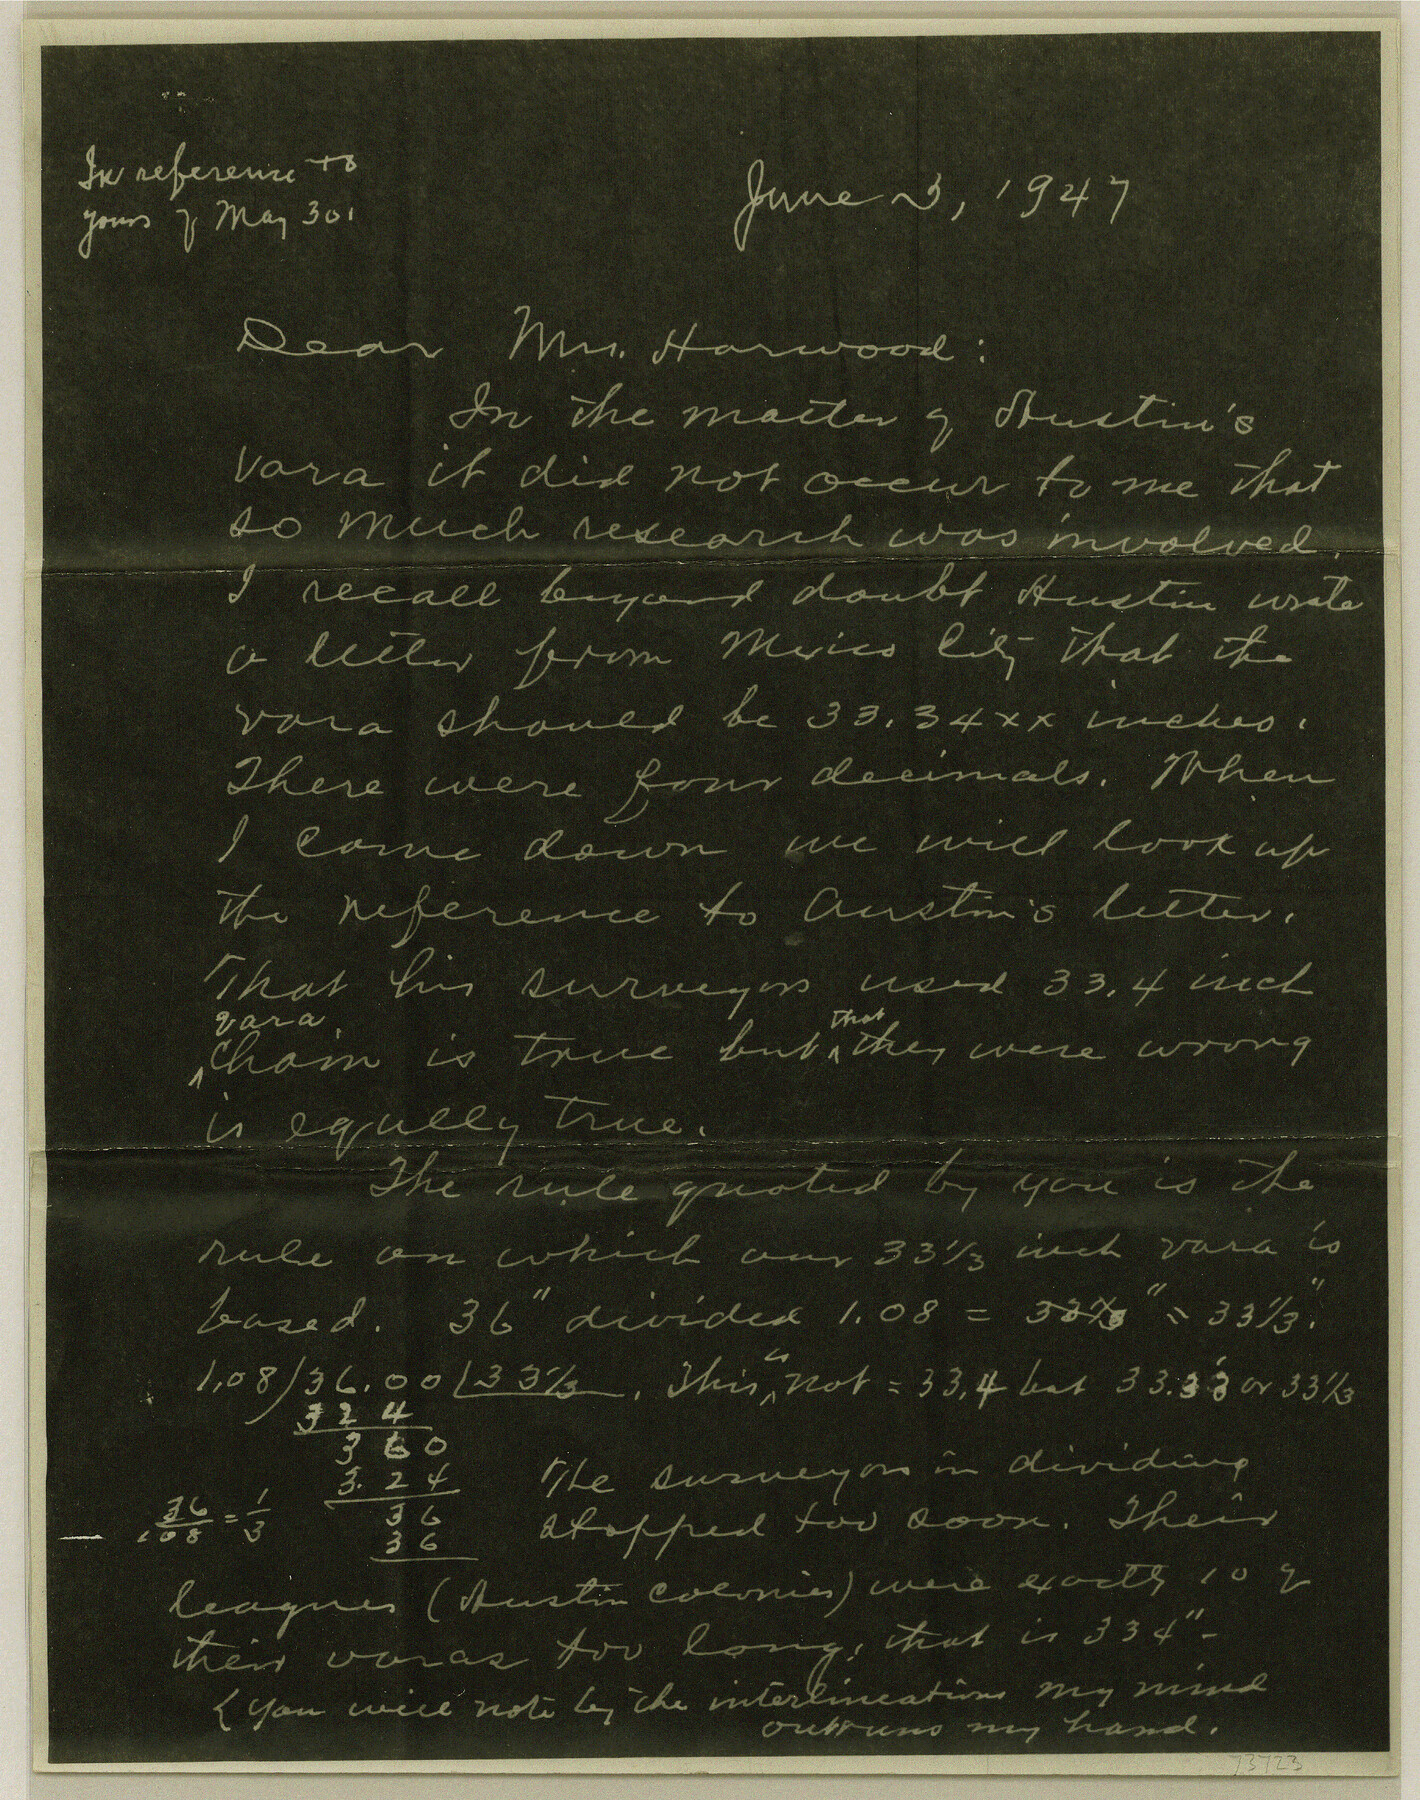 In reference to
yours of May 30.
June 3, 1947
Dear Mrs. Harwood:
In the matter of Austin's
vara it did not occur to me that
so much research was involved.
I recall beyond doubt Austin wrote
a letter from Mexico City that the
vara should be 33.34xx inches.
There were four decimals. When
I come down we will look up
the reference to Austin's letter.
That his surveyors used 33.4 inch
vara
chain is true but that they were wrong
is equally true.
The rule quoted by you is the
rule on which our 33 1/3 inch vara is
based. 36" divided 1.08 = 33 1/3" = 33 1/3".
1.08)36.00(33 1/3. This is not = 33.4 but 33.33 or 33 1/3
32 4
3 60
3.24
36
36
36/108 = 1/3
The surveyors in dividing
stopped too soon. Their
leagues (Austin Colonies) were exactly 10 of
their varas too long, that is 334"-
(You will note by the interlineations my mind
outruns my hand.
73723